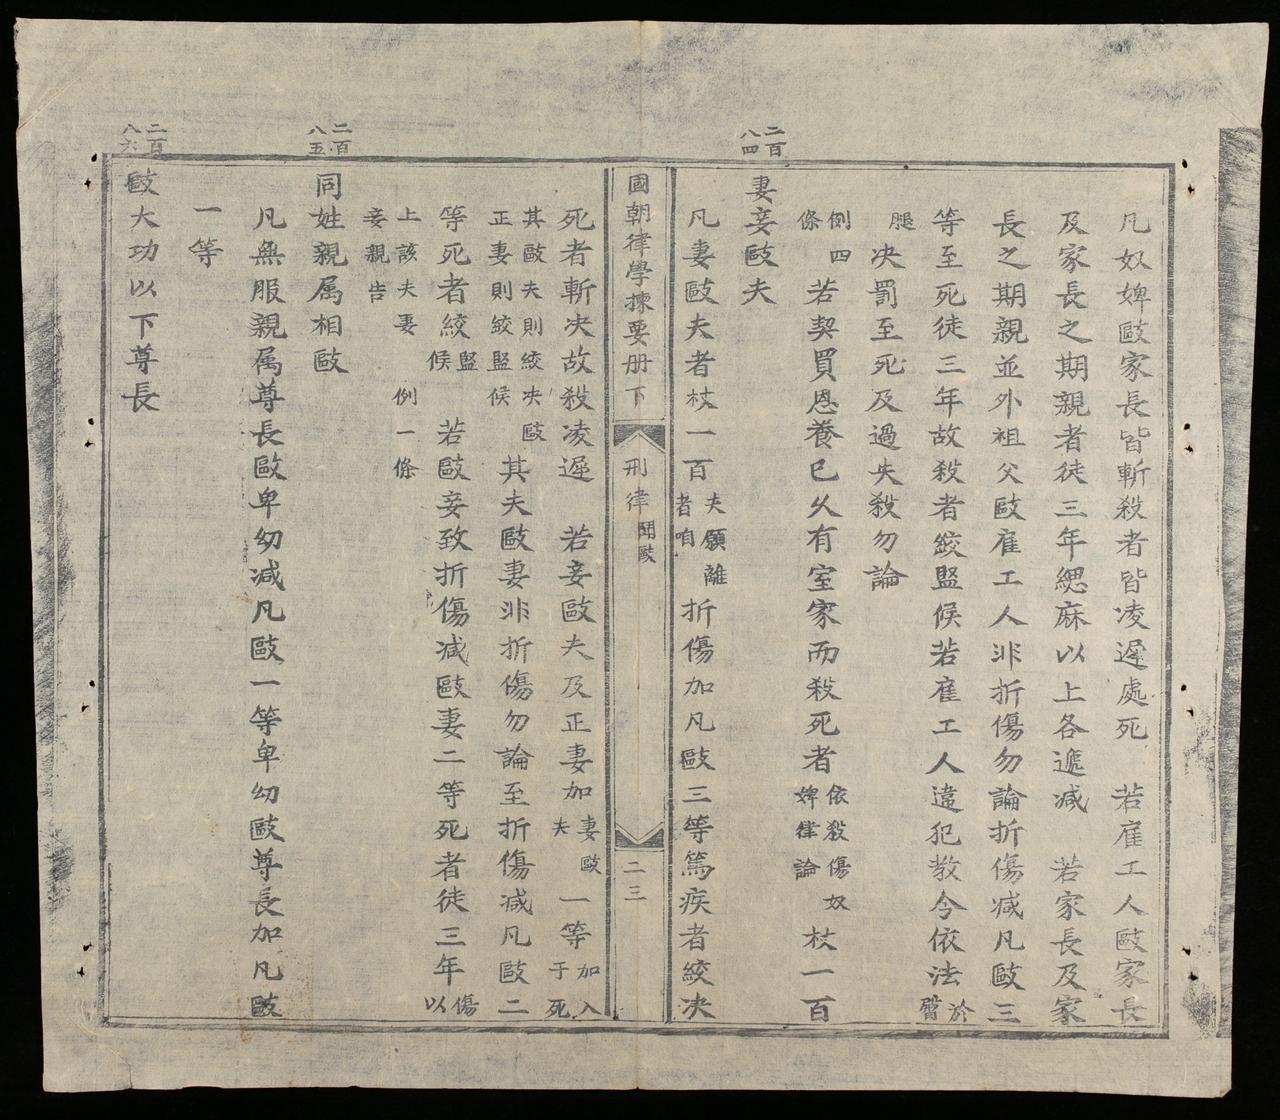 凡奴婢毆家長皆斬殺者皆凌遲處死　若雇工人毆家長
及家長之期親者徒三年緦麻以上各遞减　若家長及家
長之期親並外祖父毆雇工人非折傷勿論折傷减凡毆三
等至死徒三年故殺者絞監候若雇工人違犯教令依法於臀
腿决罰至死及過失殺勿論
例四條　若契買恩養已久有室家而殺死者依殺傷奴婢律論杖一百
二百八四
妻妾毆夫
凡妻毆夫者杖一百夫願離者咱折傷加凡毆三等篤疾者絞决
國朝律學揀要册下　刑律鬪毆　二三
死者斬决故殺凌遲　若妾毆夫及正妻加妻毆夫一等加入于死
其毆夫則絞决毆正妻則絞監候　其夫毆妻非折傷勿論至折傷减凡毆二
等死者絞監候　若毆妾致折傷减毆妻二等死者徒三年傷以
上該夫妻妾親告　例一條
二百八五
同姓親属相毆
凡無服親属尊長毆卑幼减凡毆一等卑幼毆尊長加凡毆
一等
二百八六
毆大功以下尊長